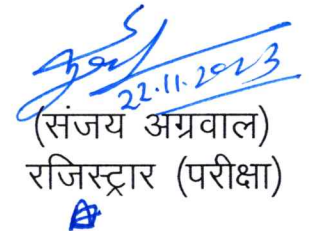 22.11.2023
(संजय अग्रवाल)
रजिस्ट्रार (परीक्षा)